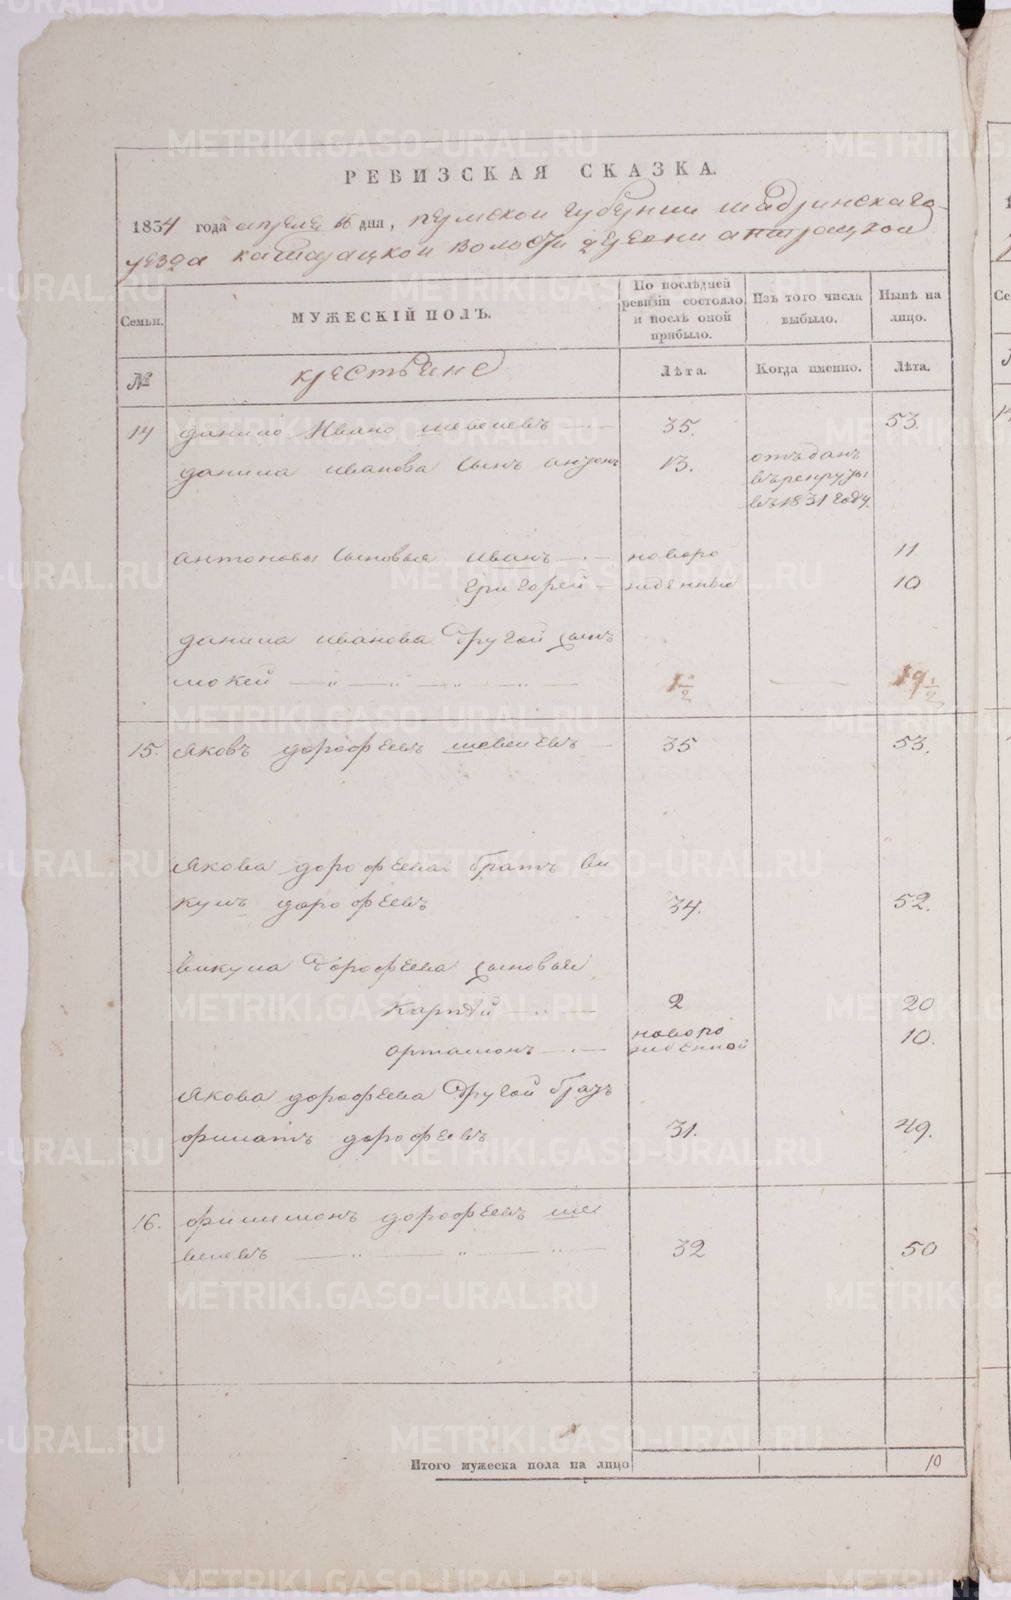 РЕВИЗСКАЯ СКАЗКА.
1834 года апреля дня, пермской губернии шадринскаго
уезда волости деревни
Семьи.
МУЖЕСКІЙ ПОЛЪ.
По послѣдней ревизіи состояло и послѣ оной прибыло.
Изъ того числа выбыло.
Нынѣ на лицо.
№
крестьяне
Лѣта.
Когда именно.
Лѣта.
14 данило Ивано шевелевъ 35. 53.
данила иванова сынъ антонъ 13. отъданъ
въ рекруты
въ 1831 году.
антоновы сыновья иванъ новоро 11
григорей жденныи 10
данила иванова другой сынъ
мокей 1½ 19½
15. яковъ дорофеевъ шевелевъ 35 53.
якова дорофеева братъ ви
кулъ дорофеевъ 34. 52.
викула дорофеева сыновья
2 20
артамонъ новоро
жденной 10.
якова дорофеева другой братъ
филатъ дорофеевъ 31. 49.
16. филимонъ дорофеевъ ше
велевъ 32 50
Итого мужеска пола на лицо 10
METRIKI.GASO-URAL.RU